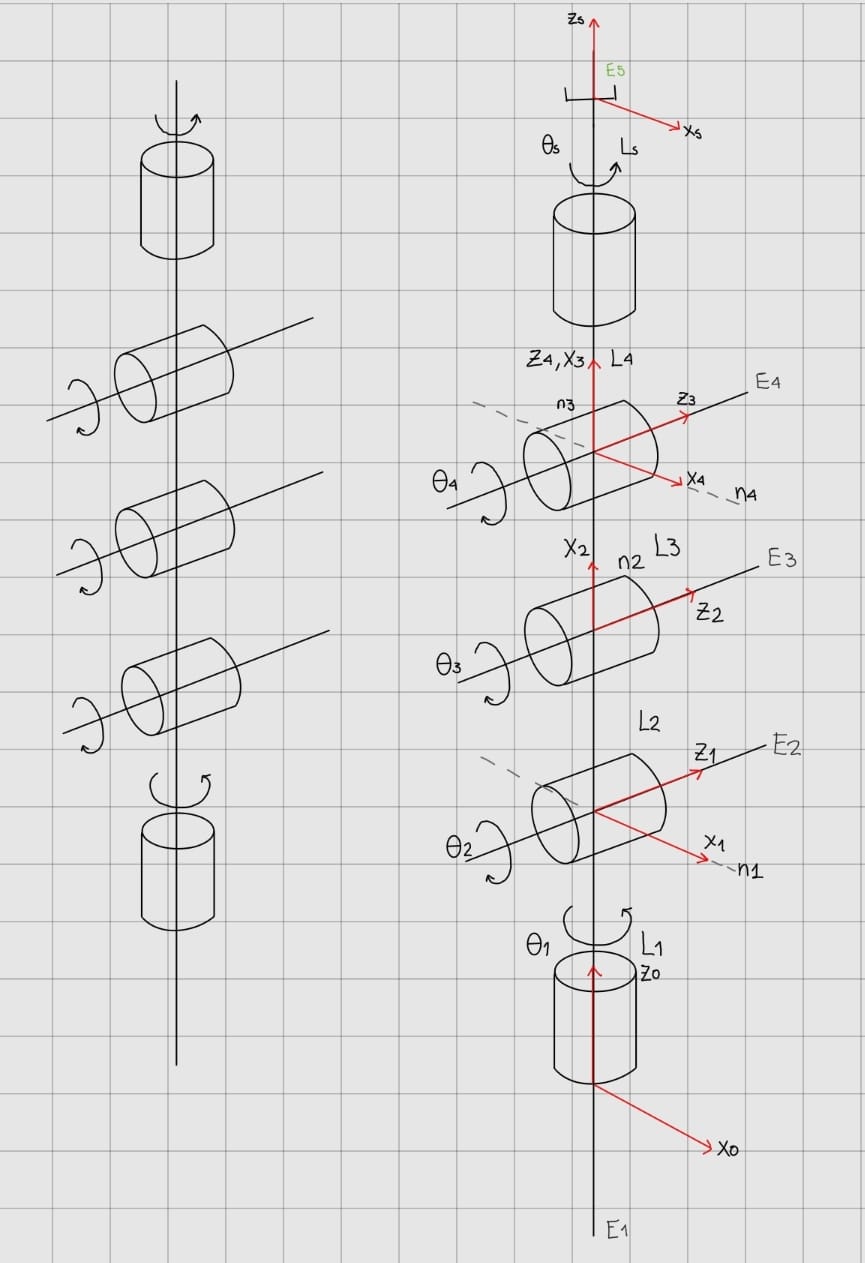 Zs
E5
Xs
θs Ls
Z4, X3 L4
E4
n3 Z3
θ4 X4 n4
X2 n2 L3 E3
Z2
θ3
L2
Z1 E2
θ2 X1
n1
θ1 L1
Z0
X0
E1